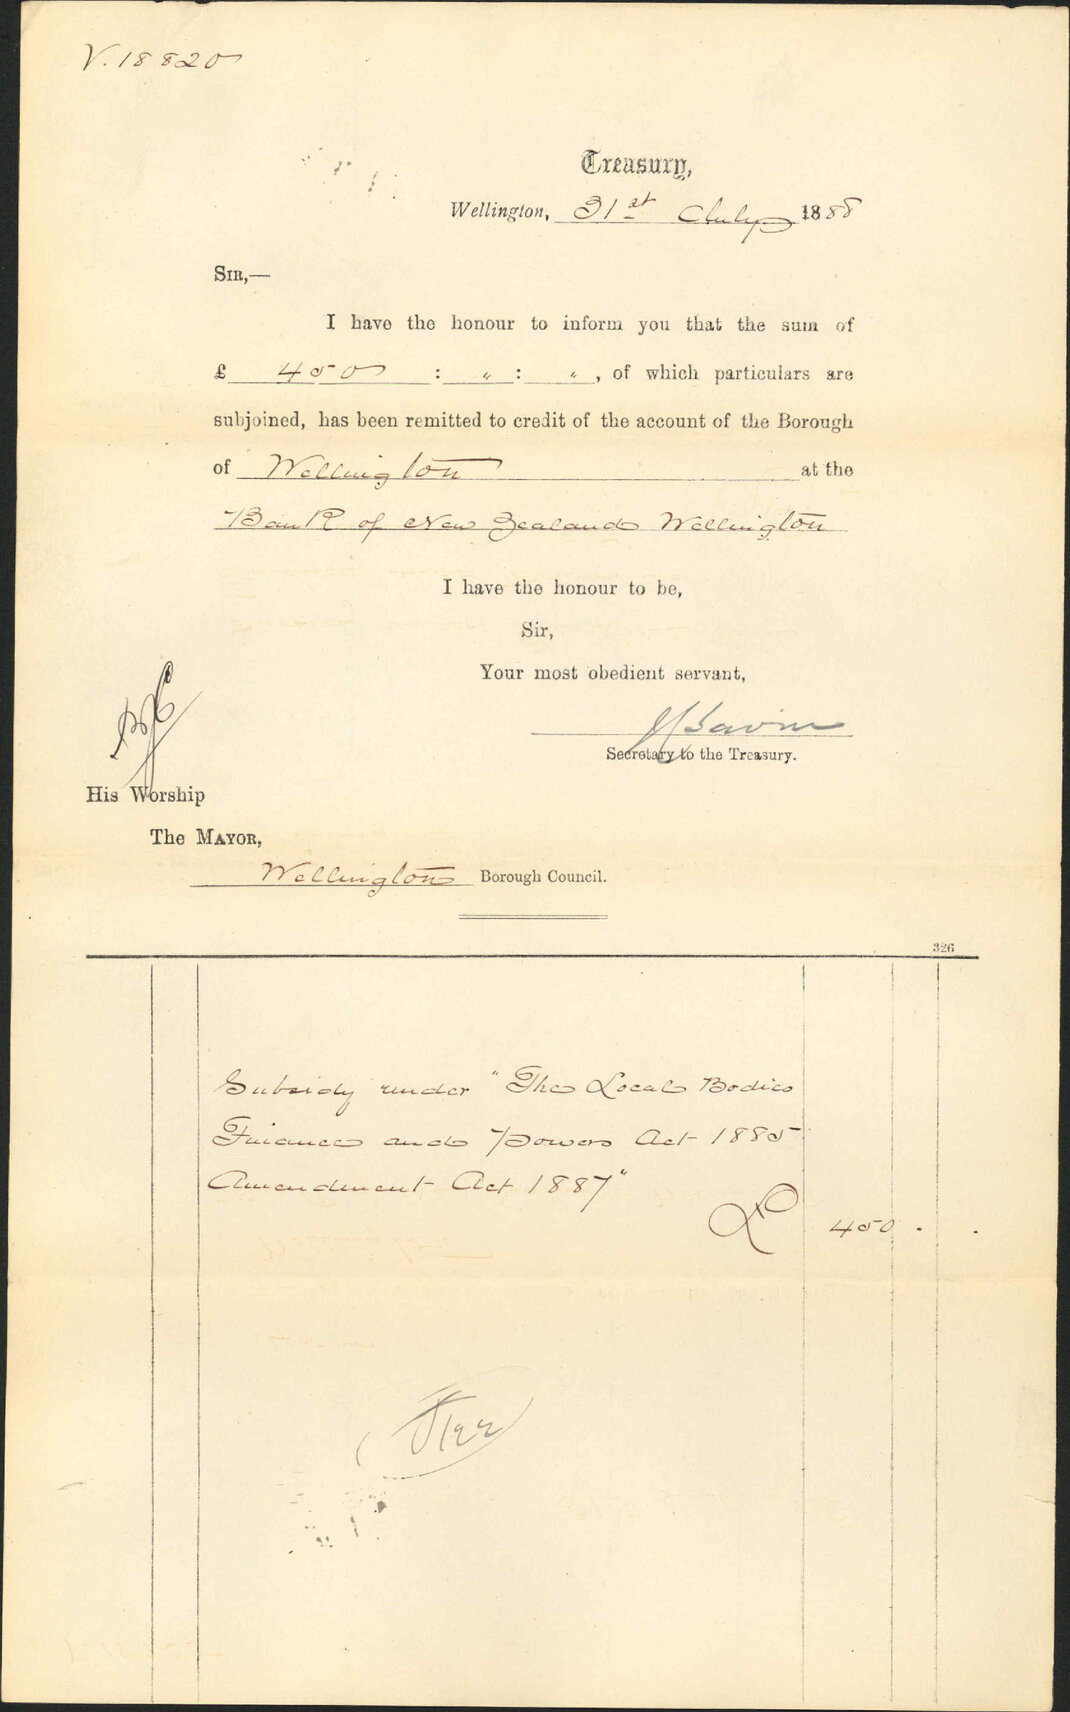 V. 18820
Treasury,
Wellington, 31st July 1888
SIR,—
I have the honour to inform you that the sum of
£ 450 : " : " , of which particulars are
subjoined, has been remitted to credit of the account of the Borough
of Wellington at the
Bank of New Zealand Wellington
I have the honour to be,
Sir,
Your most obedient servant,
Secretary to the Treasury.
His Worship
The MAYOR,
Wellington Borough Council.
326
Subsidy under "The Local Bodies
Finance and Powers Act 1885
Amendment Act 1887"
£ 450 . .